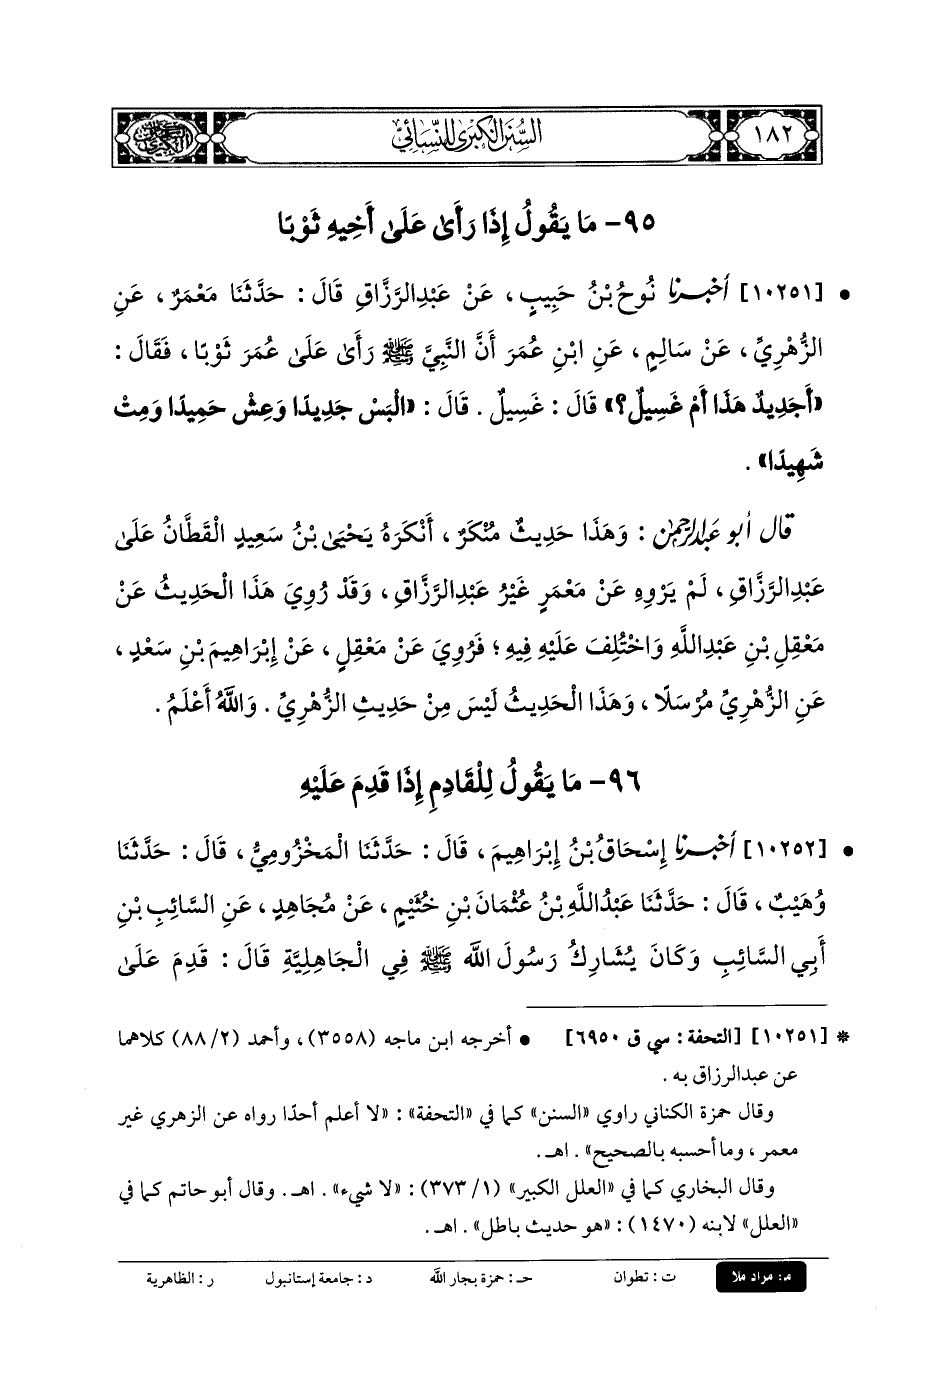 ١٨٢
السُّنَنُ الكِبْرَىٰ لِلنَّسَائِيّ
٩٥- مَا يَقُولُ إِذَا رَأَىٰ عَلَىٰ أَخِيهِ ثَوْبًا
• [١٠٢٥١] أخبرنا نُوحُ بْنُ حَبِيبٍ، عَنْ عَبْدِالرَّزَّاقِ قَالَ: حَدَّثَنَا مَعْمَرٌ، عَنِ
الزُّهْرِيِّ، عَنْ سَالِمٍ، عَنِ ابْنِ عُمَرَ أَنَّ النَّبِيَّ ﷺ رَأَىٰ عَلَىٰ عُمَرَ ثَوْبًا، فَقَالَ:
«أَجَدِيدٌ هَذَا أَمْ غَسِيلٌ؟» قَالَ: غَسِيلٌ. قَالَ: «الْبَسْ جَدِيدًا وَعِشْ حَمِيدًا وَمِتْ
شَهِيدًا».
قال أبو عبدالرحمن: وَهَذَا حَدِيثٌ مُنْكَرٌ، أَنْكَرَهُ يَحْيَىٰ بْنُ سَعِيدٍ الْقَطَّانُ عَلَىٰ
عَبْدِالرَّزَّاقِ، لَمْ يَرْوِهِ عَنْ مَعْمَرٍ غَيْرُ عَبْدِالرَّزَّاقِ، وَقَدْ رُوِيَ هَذَا الْحَدِيثُ عَنْ
مَعْقِلِ بْنِ عَبْدِاللَّهِ وَاخْتُلِفَ عَلَيْهِ فِيهِ؛ فَرُوِيَ عَنْ مَعْقِلٍ، عَنْ إِبْرَاهِيمَ بْنِ سَعْدٍ،
عَنِ الزُّهْرِيِّ مُرْسَلًا، وَهَذَا الْحَدِيثُ لَيْسَ مِنْ حَدِيثِ الزُّهْرِيِّ. وَاللَّهُ أَعْلَمُ.
٩٦- مَا يَقُولُ لِلْقَادِمِ إِذَا قَدِمَ عَلَيْهِ
• [١٠٢٥٢] أخبرنا إِسْحَاقُ بْنُ إِبْرَاهِيمَ، قَالَ: حَدَّثَنَا الْمَخْزُومِيُّ، قَالَ: حَدَّثَنَا
وُهَيْبٌ، قَالَ: حَدَّثَنَا عَبْدُاللَّهِ بْنُ عُثْمَانَ بْنِ خُثَيْمٍ، عَنْ مُجَاهِدٍ، عَنِ السَّائِبِ بْنِ
أَبِي السَّائِبِ وَكَانَ يُشَارِكُ رَسُولَ اللَّهِ ﷺ فِي الْجَاهِلِيَّةِ قَالَ: قَدِمَ عَلَىٰ
* [١٠٢٥١] [التحفة: سي ق ٦٩٥٠] • أخرجه ابن ماجه (٣٥٥٨)، وأحمد (٢/ ٨٨) كلاهما
عن عبدالرزاق به.
وقال حمزة الكناني راوي «السنن» كما في «التحفة»: «لا أعلم أحدًا رواه عن الزهري غير
معمر، وما أحسبه بالصحيح». اهـ.
وقال البخاري كما في «العلل الكبير» (١/ ٣٧٣): «لا شيء». اهـ. وقال أبو حاتم كما في
«العلل» لابنه (١٤٧٠): «هو حديث باطل». اهـ.
م: مراد ملا ت: تطوان حـ: حمزة بجار الله د: جامعة إستانبول ر: الظاهرية